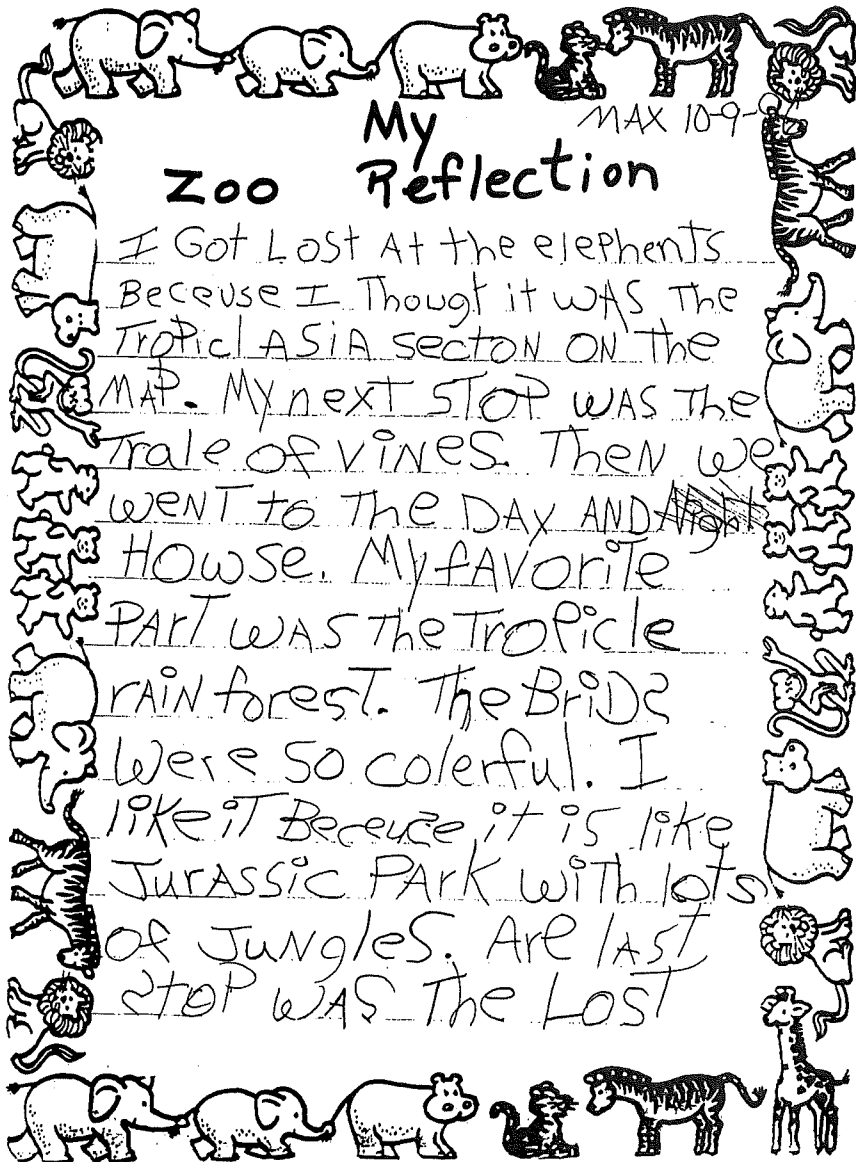 My
MAX 10-9-
Zoo Reflection
I Got Lost At the elephents
Beceuse I Thougt it wAS The
Tropicl ASiA secton ON The
MAP. My next STOP wAS The
Trale of viNes. TheN we
weNT to The DAY AND Night
Howse. My fAVoriTe
PArT wAS The Tropicle
rAiN forest. The BriDs
were so colerful. I
like iT Beceuze it is like
JurASSic PArk wiTh lots
of JuNgles. Are lAST
STOP wAS The LosT